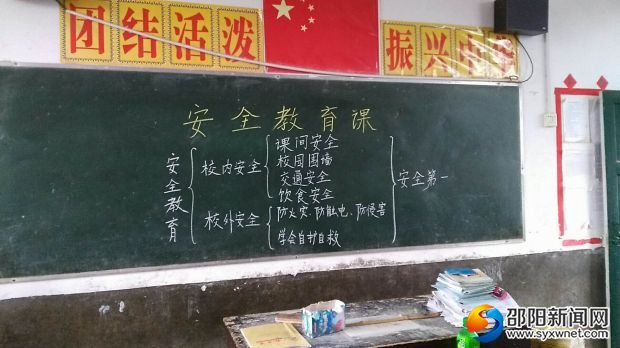 团结活泼
振兴中华
安全教育课
安全教育
校内安全
课间安全
校园围墙
交通安全
饮食安全
校外安全
防火灾、防触电、防侵害
学会自护自救
安全第一
邵阳新闻网
www.syxwnet.com